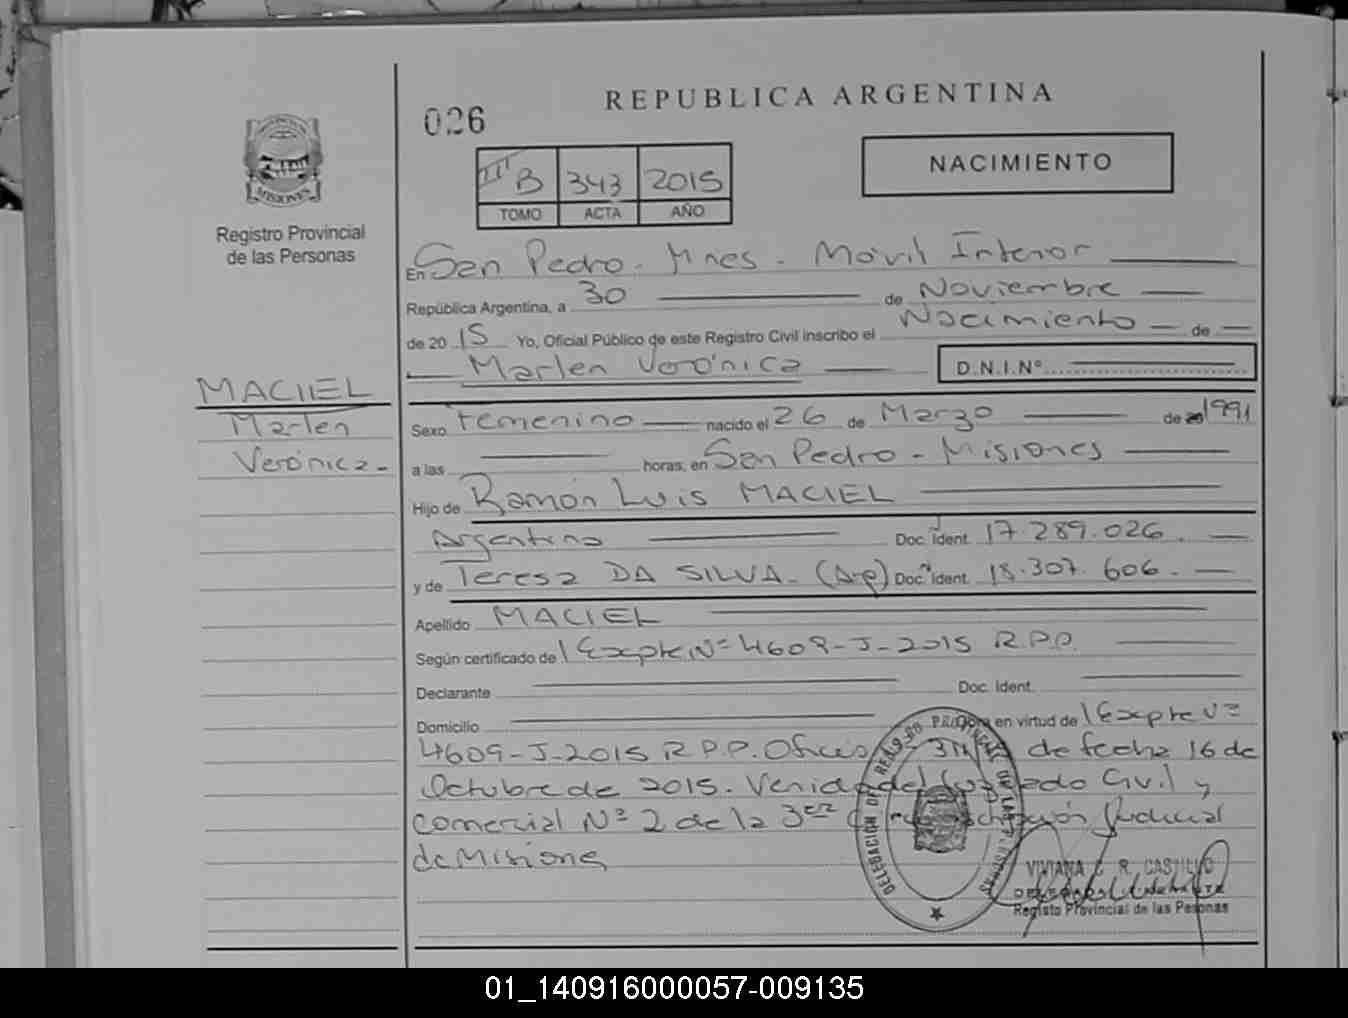 REPUBLICA ARGENTINA
026
NACIMIENTO
III B 343 2015
TOMO ACTA AÑO
MISIONES
Registro Provincial
de las Personas
En San Pedro - Mnes - Móvil Interior
República Argentina, a 30 de Noviembre
de 2015 Yo, Oficial Público de este Registro Civil inscribo el Nacimiento de
Marlen Verónica D.N.I.Nº
MACIEL
Marlen
Verónica -
Sexo Femenino nacido el 26 de Marzo de 20 1991
a las horas, en San Pedro - Misiones
Hijo de Ramón Luis MACIEL
Argentino Doc. Ident. 17.289.026.
y de Teresa DA SILVA - (Arg) Doc. Ident. 18.307.606.
Apellido MACIEL
Según certificado de Expte Nº 4609-J-2015 R.P.P.
Declarante Doc. Ident.
Domicilio Obra en virtud de Expte Nº
4609-J-2015 R.P.P. Oficio de fecha 16 de
Octubre de 2015. Venida del Juzgado Civil y
Comercial Nº 2 de la 3era Circunscripción Judicial
de Misiones
DELEGACION DEL REG. PROVINCIAL DE LAS PERSONAS
VIVIANA C. R. CASTILLO
Registo Provincial de las Pesonas
01_140916000057-009135